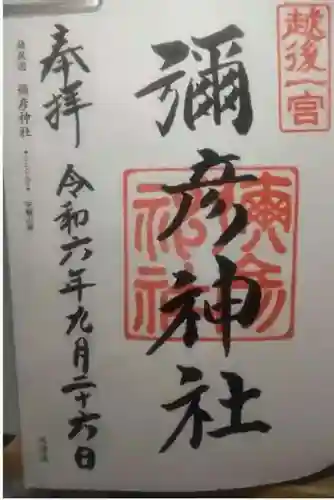 越後一宮
彌彦神社
彌彦神社
奉拝
令和六年九月二十六日
彌彦神社